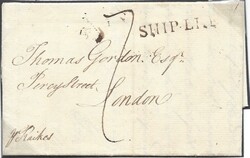 SHIP LRE
Thomas Gordon Esqr.
Percy Street
London
pr Raikes